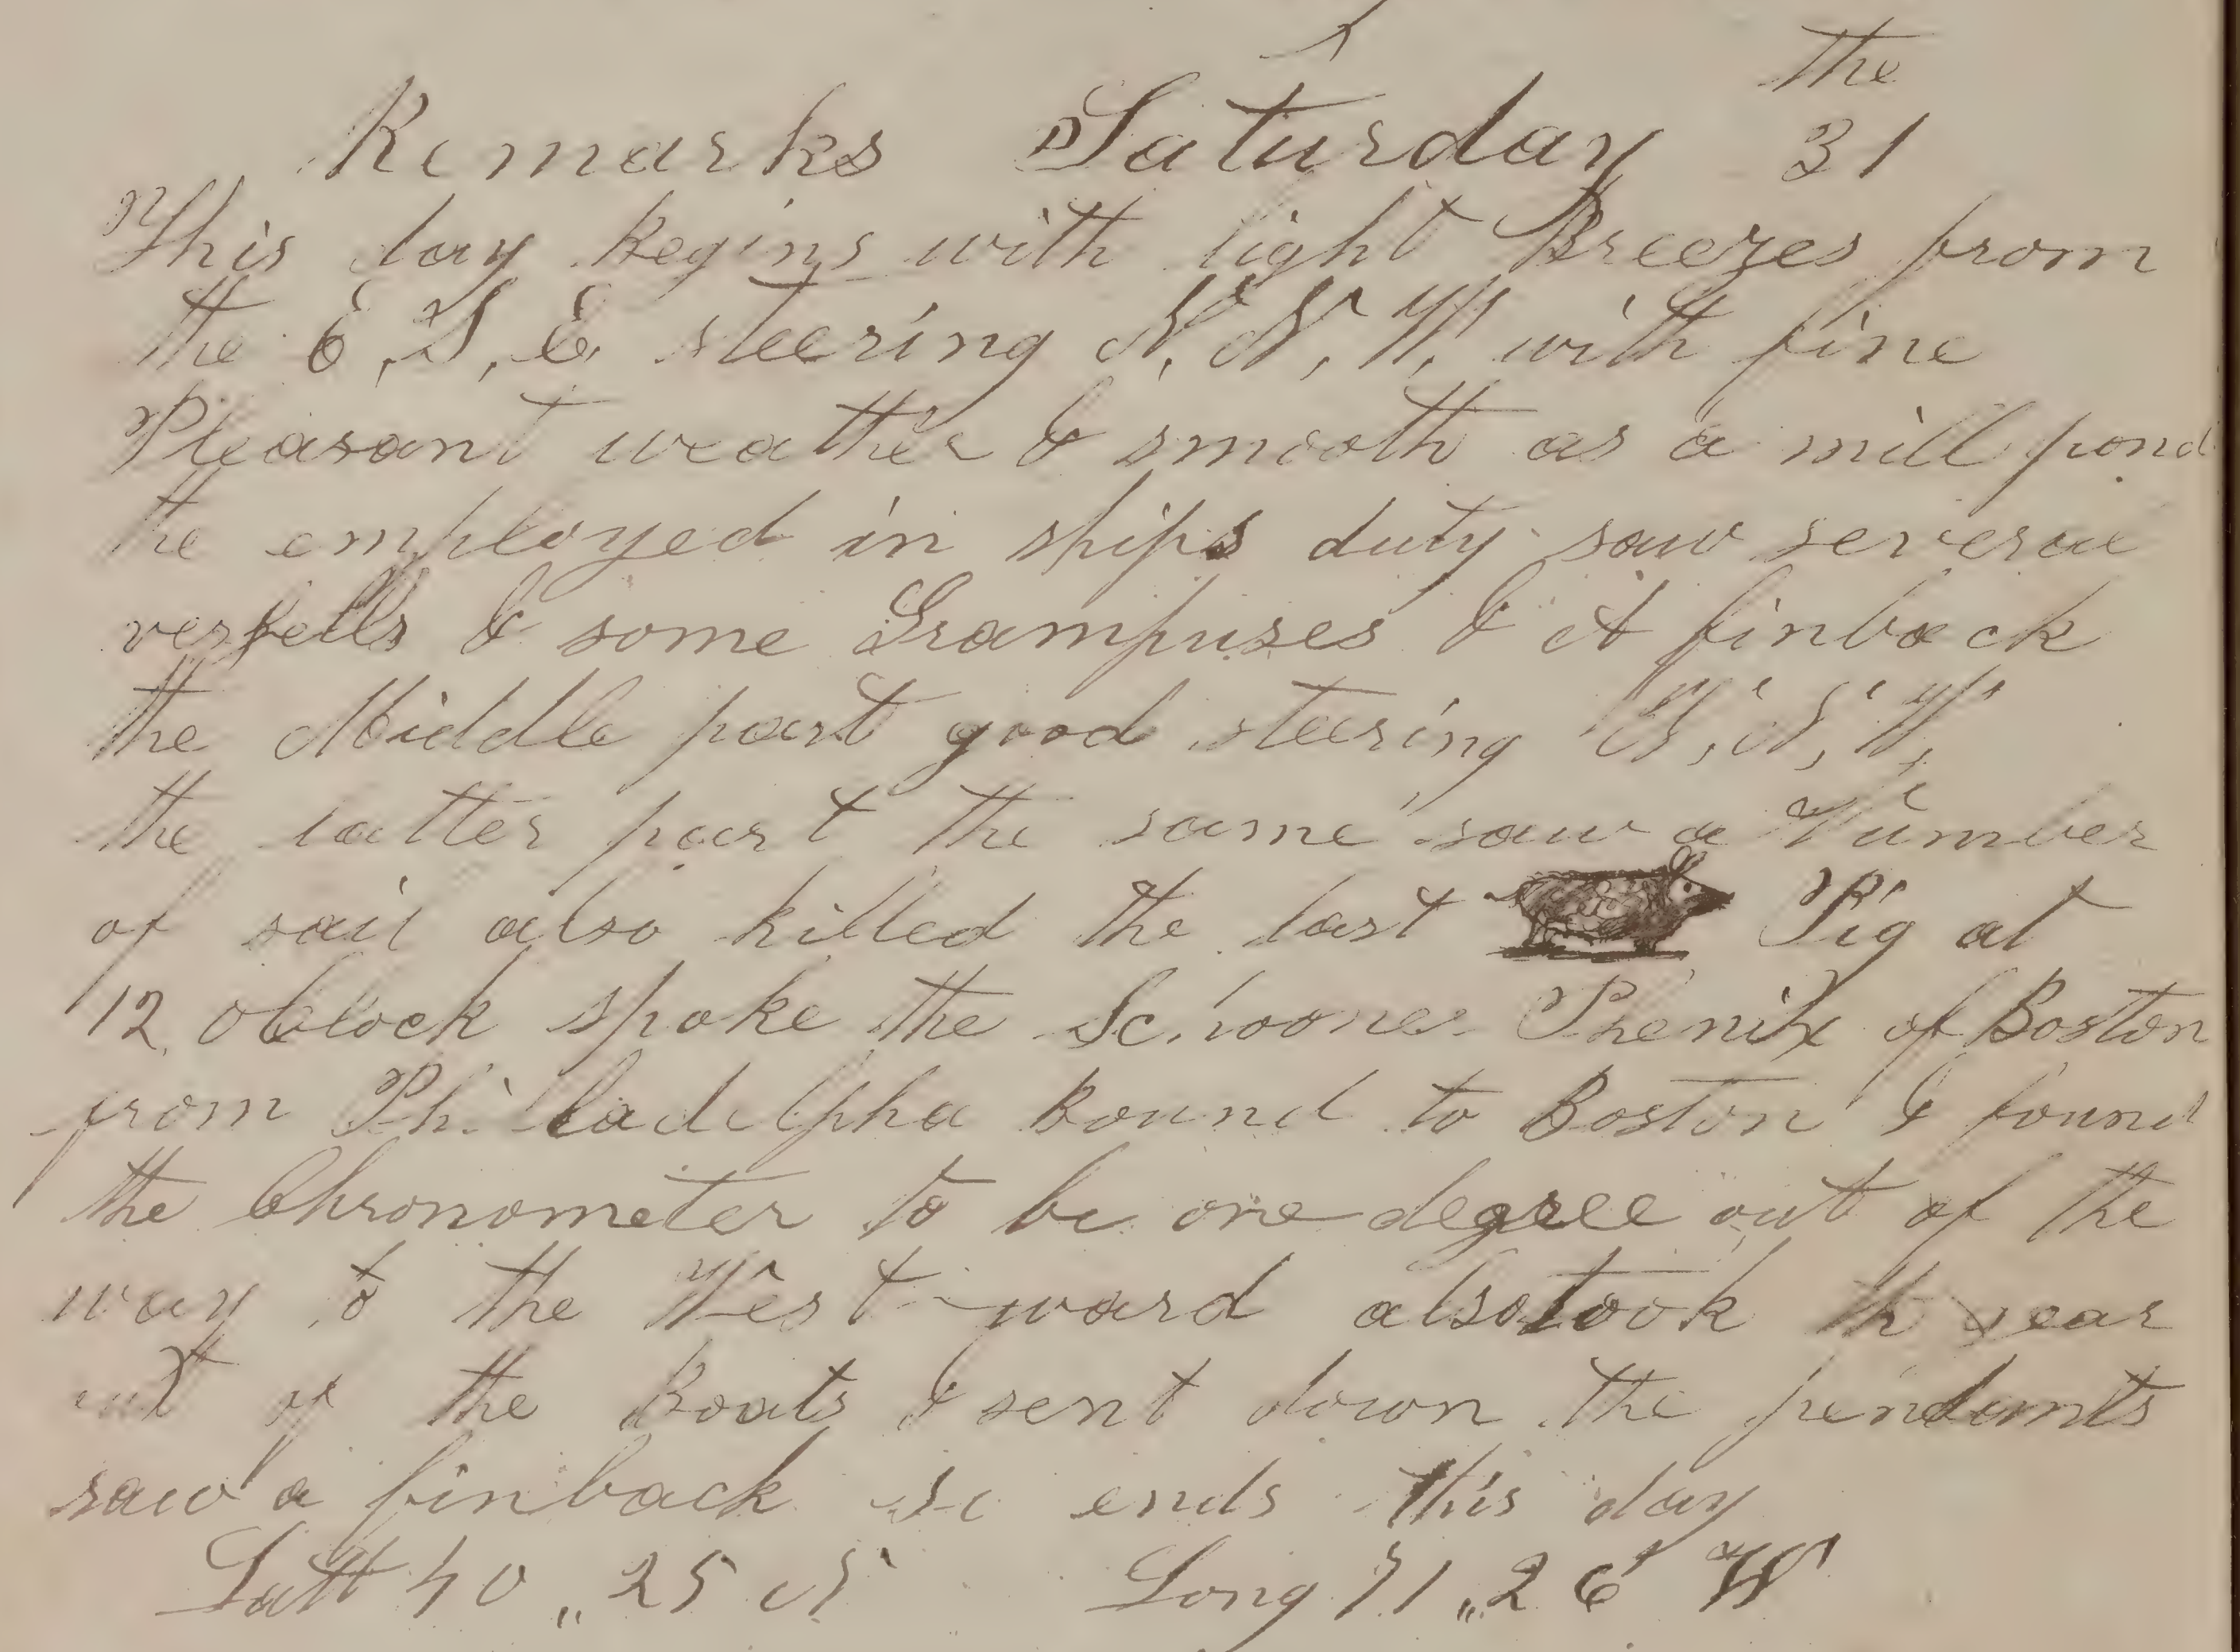 the
Remarks Saturday 31
This day begins with light Breezes from
the E, S, E steering N, N, W, with fine
Pleasant weather & smooth as a mill pond
the employed in ships duty saw several
vessells & some Grampuses & A finback
the Middle part good steering N, N, W,
the latter part the same saw a Number
of sail also killed the last Pig at
12, oClock spoke the Schooner Phenix of Boston
from Philadelpha Bound to Boston & found
the Chronometer to be one degree out of the
way to the Westward also took th gear
out of the Boats & sent down the pendants
saw a finback So ends this day
Latt 40 ,, 25 N Long 71 ,, 26 W